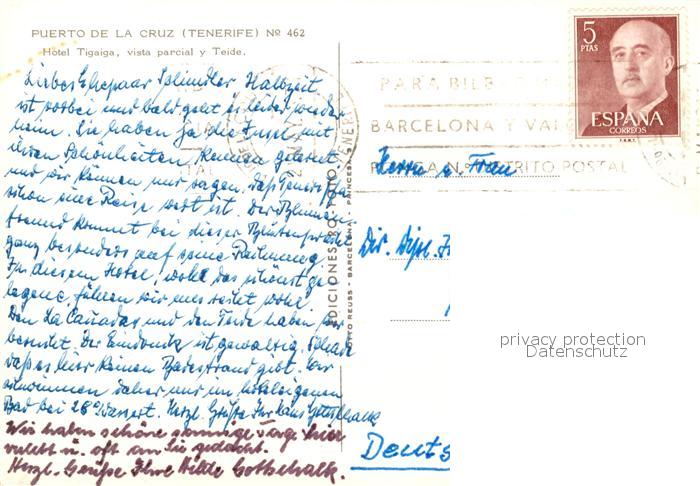 PUERTO DE LA CRUZ (TENERIFE) Nº 462
Hotel Tigaiga, vista parcial y Teide.
Liebes Ehepaar Schindler, Halbzeit
ist vorbei und bald geht es leider wieder
heim. Sie haben ja die Insel mit
ihren Schönheiten kennen gelernt
und wir können nur sagen, daß Teneriffa
schon eine Reise wert ist. Der Blumen-
freund kommt bei dieser Blütenpracht
ganz besonders auf seine Rechnung.
In diesem Hotel, wohl das schönst ge-
legene, fühlen wir uns wohl
Den La Cañadas und den Teide haben wir
besucht. Der Eindruck ist gewaltig. Schade
daß es hier keinen Badestrand gibt. Wir
schwimmen daher nur im hoteleigenen
Bad bei 28° Wassert. Herzl. Grüße Ihr Hans Gottschalk
Wir haben schöne sonnige Tage hier
verlebt u. oft an Sie gedacht.
Herzl. Grüße Ihre Hilde Gottschalk.
EDICIONES
FOTO REUSS - BARCELONA
5
PTAS
ESPAÑA
CORREOS
F.N.M.T.
PARA
BARCELONA Y
DISTRITO POSTAL
Herrn u. Frau
Dir. Dipl.
Deuts
privacy protection
Datenschutz